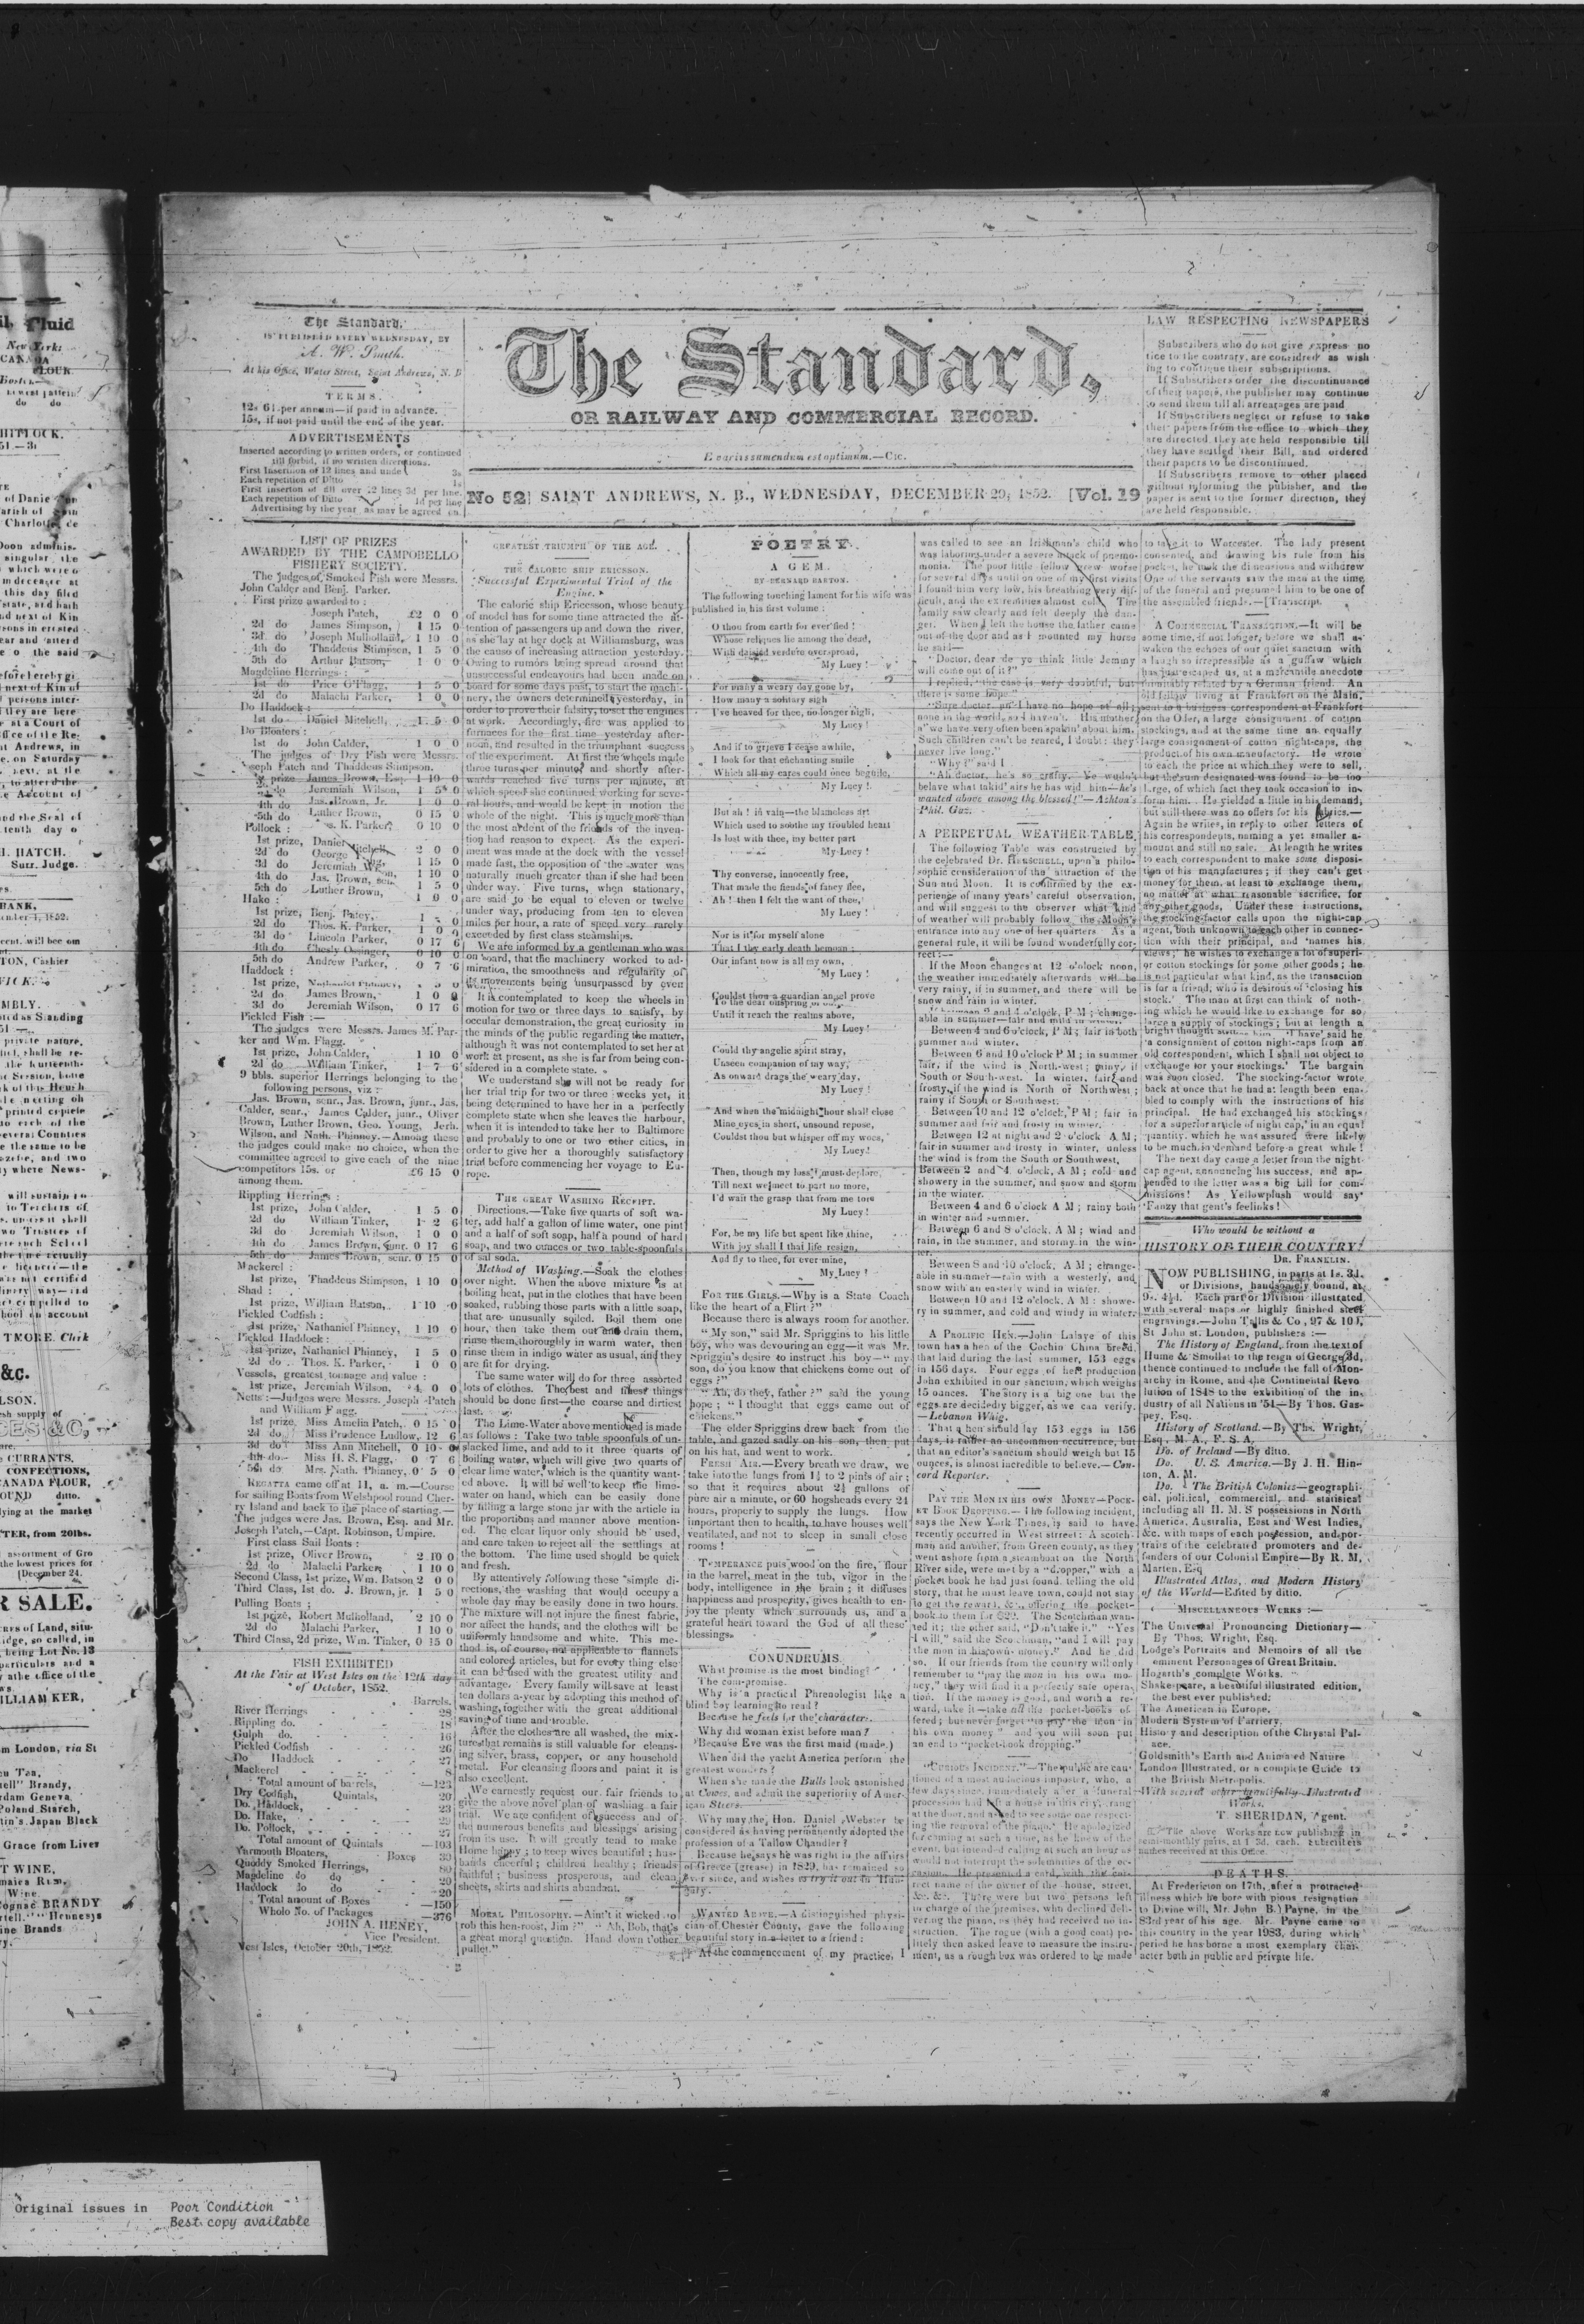 The Standard,
IS PUBLISHED EVERY WEDNESDAY, BY
A. W. Smith.
At his Office, Water Street, Saint Andrews, N. B
TERMS.
12s 6d. per annum—if paid in advance.
15s, if not paid until the end of the year.
ADVERTISEMENTS
Inserted according to written orders, or continued
till forbid, if no written directions.
First Insertion of 12 lines and under 3s
Each repetition of Ditto 1s
First insertion of all over 12 lines 3d per line.
Each repetition of Ditto 1d per line
Advertising by the year as may be agreed on.
The Standard,
OR RAILWAY AND COMMERCIAL RECORD.
E variis sumendum est optimum.—Cic.
No 52] SAINT ANDREWS, N. B., WEDNESDAY, DECEMBER 29, 1852. [Vol. 19
LAW RESPECTING NEWSPAPERS
Subscribers who do not give express no
tice to the contrary, are considred as wish
ing to continue their subscriptions.
If Subscribers order the discontinuance
of their papers, the publisher may continue
to send them till all arrearages are paid
If Subscribers neglect or refuse to take
their papers from the office to which they
are directed they are held responsible till
they have settled their Bill, and ordered
their papers to be discontinued.
If Subscribers remove to other placed
without informing the publisher, and the
paper is sent to the former direction, they
are held responsible.
LIST OF PRIZES
AWARDED BY THE CAMPOBELLO
FISHERY SOCIETY.
The judges of Smoked Fish were Messrs.
John Calder and Benj. Parker.
First prize awarded to:
Joseph Patch, £2 0 0
2d do James Simpson, 1 15 0
3d. do Joseph Mulholland, 1 10 0
4th do Thaddeus Stimpson, 1 5 0
5th do Arthur Batson, 1 0 0
Magdeline Herrings:
1st do Price O'Flagg, 1 5 0
2d do Malachi Parker, 1 0 0
Do Haddock:
1st do Daniel Mitchell, 1 5 0
Do Bloaters:
1st do John Calder, 1 0 0
The judges of Dry Fish were Messrs.
Joseph Patch and Thaddeus Stimpson.
prize James Brown, Esq. 1 10 0
do Jeremiah Wilson, 1 5 0
4th do Jas. Brown, Jr. 1 0 0
5th do Luther Brown, 0 15 0
K. Parker, 0 10 0
Pollock:
1st prize, Daniel Mitchell, 2 0 0
2d do George 1 15 0
3d do Jeremiah Wilson, 1 10 0
4th do Jas. Brown, sen. 1 5 0
5th do Luther Brown, 1 0 0
Hake:
1st prize, Benj. Batey,
2d do Thos. K. Parker, 1 0 0
3d do Lincoln Parker, 0 17 6
4th do 0 10 0
5th do Andrew Parker, 0 7 6
Haddock:
1st prize, Nathaniel Phinney,
2d do James Brown, 1 0 0
3d do Jeremiah Wilson, 0 17 6
Pickled Fish:—
The judges were Messrs. James M. Par-
ker and Wm. Flagg.
1st prize, John Calder, 1 10 0
2d do William Tinker, 1 7 6
9 bbls. superior Herrings belonging to the
following persons, viz:
Jas. Brown, senr., Jas. Brown, junr., Jas.
Calder, senr., James Calder, junr., Oliver
Brown, Luther Brown, Geo. Young, Jerh.
Wilson, and Nath. Phinney.—Among these
the judges could make no choice, when the
committee agreed to give each of the nine
competitors 15s. or £6 15 0
among them.
Rippling Herrings:
1st prize, John Calder, 1 5 0
2d do William Tinker, 1 2 6
3d do Jeremiah Wilson, 1 0 0
4th do James Brown, junr. 0 17 6
5th do James Brown, senr. 0 15 0
Mackerel:
1st prize, Thaddeus Stimpson, 1 10 0
Shad:
1st prize, William Batson, 1 10 0
Pickled Codfish:
1st prize, Nathaniel Phinney, 1 10 0
Pickled Haddock:
1st prize, Nathaniel Phinney, 1 5 0
2d do Thos. K. Parker, 1 0 0
Vessels, greatest tonnage and value:
1st prize, Jeremiah Wilson, 4 0 0
Netts:—Judges were Messrs. Joseph Patch
and William Flagg.
1st prize, Miss Amelia Patch, 0 15 0
2d do Miss Prudence Ludlow, 12 6
3d do Miss Ann Mitchell, 0 10 0
4th do Miss H. S. Flagg, 0 7 6
5th do Mrs. Nath. Phinney, 0 5 0
REGATTA came off at 11, a. m.—Course
for sailing Boats from Welshpool round Cher-
ry Island and back to the place of starting.—
The judges were Jas. Brown, Esq. and Mr.
Joseph Patch,—Capt. Robinson, Umpire.
First class Sail Boats:
1st prize, Oliver Brown, 2 10 0
2d do Malachi Parker, 1 10 0
Second Class, 1st prize, Wm. Batson 2 0 0
Third Class, 1st do. J. Brown, jr. 1 5 0
Pulling Boats;
1st prize, Robert Mulholland, 2 10 0
2d do Malachi Parker, 1 10 0
Third Class, 2d prize, Wm. Tinker, 0 15 0
FISH EXHIBITED
At the Fair at West Isles on the 12th day
of October, 1852.
Barrels.
River Herrings 28
Rippling do. 18
Gulph do. 16
Pickled Codfish 26
Do Haddock 27
Mackerel 8
Total amount of barrels, —123
Dry Codfish, Quintals, 20
Do. Haddock, 23
Do. Hake, 29
Do. Pollock, 27
Total amount of Quintals —103
Yarmouth Bloaters, Boxes 30
Quoddy Smoked Herrings, 80
Magdeline do do 20
Haddock do do 20
Total amount of Boxes —150
Whole No. of Packages —376
JOHN A. HENEY,
Vice President.
West Isles, October 20th, 1852.
GREATEST TRIUMPH OF THE AGE.
THE CALORIC SHIP ERICSSON.
Successful Experimental Trial of the
Engine.
The caloric ship Ericesson, whose beauty
of model has for some time attracted the at-
tention of passengers up and down the river,
as she lay at her dock at Williamsburg, was
the cause of increasing attraction yesterday.
Owing to rumors being spread around that
unsuccessful endeavours had been made on
board for some days past, to start the machi-
nery, the owners determined yesterday, in
order to prove their falsity, to set the engines
at work. Accordingly, fire was applied to
furnaces for the first time yesterday after-
noon, and resulted in the triumphant success
of the experiment. At first the wheels made
three turns per minute, and shortly after-
wards reached five turns per minute, at
which speed she continued working for seve-
ral hours, and would be kept in motion the
whole of the night. This is much more than
the most ardent of the friends of the inven-
tion had reason to expect. As the experi-
ment was made at the dock with the vessel
made fast, the opposition of the water was
naturally much greater than if she had been
under way. Five turns, when stationary,
are said to be equal to eleven or twelve
under way, producing from ten to eleven
miles per hour, a rate of speed very rarely
exceeded by first class steamships.
We are informed by a gentleman who was
on board, that the machinery worked to ad-
miration, the smoothness and regularity of
its movements being unsurpassed by even
It is contemplated to keep the wheels in
motion for two or three days to satisfy, by
occular demonstration, the great curiosity in
the minds of the public regarding the matter,
although it was not contemplated to set her at
work at present, as she is far from being con-
sidered in a complete state.
We understand she will not be ready for
her trial trip for two or three weeks yet, it
being determined to have her in a perfectly
complete state when she leaves the harbour,
when it is intended to take her to Baltimore
and probably to one or two other cities, in
order to give her a thoroughly satisfactory
trial before commencing her voyage to Eu-
rope.
THE GREAT WASHING RECEIPT.
Directions.—Take five quarts of soft wa-
ter, add half a gallon of lime water, one pint
and a half of soft soap, half a pound of hard
soap, and two ounces or two table-spoonfuls
of sal soda.
Method of Washing.—Soak the clothes
over night. When the above mixture is at
boiling heat, put in the clothes that have been
soaked, rubbing those parts with a little soap,
that are unusually soiled. Boil them one
hour, then take them out and drain them,
rinse them thoroughly in warm water, then
rinse them in indigo water as usual, and they
are fit for drying.
The same water will do for three assorted
lots of clothes. The best and finest things
should be done first—the coarse and dirtiest
last.
The Lime-Water above mentioned is made
as follows: Take two table spoonfuls of un-
slacked lime, and add to it three quarts of
Boiling water, which will give two quarts of
clear lime water, which is the quantity want-
ed above. It will be well to keep the lime-
water on hand, which can be easily done
by filling a large stone jar with the article in
the proportions and manner above mention-
ed. The clear liquor only should be used,
and care taken to reject all the settlings at
the bottom. The lime used should be quick
and fresh.
By attentively following these simple di-
rections, the washing that would occupy a
whole day may be easily done in two hours.
The mixture will not injure the finest fabric,
nor affect the hands, and the clothes will be
uniformly handsome and white. This me-
thod is, of course, not applicable to flannels
and colored articles, but for every thing else
it can be used with the greatest utility and
advantage. Every family will save at least
ten dollars a-year by adopting this method of
washing, together with the great additional
saving of time and trouble.
After the clothes are all washed, the mix-
ture that remains is still valuable for cleans-
ing silver, brass, copper, or any household
metal. For cleansing floors and paint it is
also excellent.
We earnestly request our fair friends to
give the above novel plan of washing a fair
trial. We are confident of success and of
the numerous benefits and blessings arising
from its use. It will greatly tend to make
Home happy; to keep wives beautiful; hus-
bands cheerful; children healthy; friends
faithful; business prosperous, and clean
sheets, skirts and shirts abundant.
MORAL PHILOSOPHY.—Ain't it wicked to
rob this hen-roost, Jim?" "Ah, Bob, that's
a great moral question. Hand down t'other
pullet."
POETRY.
A GEM.
BY BERNARD BARTON.
The following touching lament for his wife was
published in his first volume:
O thou from earth for ever fled!
Whose reliques lie among the dead,
With daisied verdure overspread,
My Lucy!
For many a weary day gone by,
How many a solitary sigh
I've heaved for thee, no longer nigh,
My Lucy!
And if to grieve I cease awhile,
I look for that enchanting smile
Which all my cares could once beguile,
My Lucy!
But ah! in vain—the blameless art
Which used to soothe my troubled heart
Is lost with thee, my better part
My Lucy!
Thy converse, innocently free,
That made the fiends of fancy flee,
Ah! then I felt the want of thee,
My Lucy!
Nor is it for myself alone
That I thy early death bemoan;
Our infant now is all my own,
My Lucy!
Couldst thou a guardian angel prove
To the dear offspring of our
Until it reach the realms above,
My Lucy!
Could thy angelic spirit stray,
Unseen companion of my way,
As onward drags the weary day,
My Lucy!
And when the midnight hour shall close
Mine eyes in short, unsound repose,
Couldst thou but whisper off my woes,
My Lucy!
Then, though my loss I must deplore,
Till next we meet to part no more,
I'd wait the grasp that from me tore
My Lucy!
For, be my life but spent like thine,
With joy shall I that life resign,
And fly to thee, for ever mine,
My Lucy!
FOR THE GIRLS.—Why is a State Coach
like the heart of a Flirt?"
Because there is always room for another.
"My son," said Mr. Spriggins to his little
boy, who was devouring an egg—it was Mr.
Spriggin's desire to instruct his boy—"my
son, do you know that chickens come out of
eggs?"
"Ah, do they, father?" said the young
hope; "I thought that eggs came out of
chickens."
The elder Spriggins drew back from the
table, and gazed sadly on his son, then put
on his hat, and went to work.
FRESH AIR.—Every breath we draw, we
take into the lungs from 1½ to 2 pints of air;
so that it requires about 2½ gallons of
pure air a minute, or 60 hogsheads every 24
hours, properly to supply the lungs. How
important then to health, to have houses well
ventilated, and not to sleep in small close
rooms!
TEMPERANCE puts wood on the fire, flour
in the barrel, meat in the tub, vigor in the
body, intelligence in the brain; it diffuses
happiness and prosperity, gives health to en-
joy the plenty which surrounds us, and a
grateful heart toward the God of all these
blessings.
CONUNDRUMS.
What promise is the most binding?
The com-promise.
Why is a practical Phrenologist like a
blind boy learning to read?
Because he feels for the characters.
Why did woman exist before man?
Because Eve was the first maid (made.)
When did the yacht America perform the
greatest wonders?
When she made the Bulls look astonished
at Cowes, and admit the superiority of Amer-
ican Steers.
Why may the Hon. Daniel Webster be
considered as having permanently adopted the
profession of a Tallow Chandler?
Because he says he was right in the affairs
of Greece (grease) in 1820, has remained so
ever since, and wishes to try it out in Hun-
gary.
WANTED ABOVE.—A distinguished physi-
cian of Chester County, gave the following
beautiful story in a letter to a friend:
At the commencement of my practice, I
was called to see an Irishman's child who
was laboring under a severe attack of pneumo-
monia. The poor little fellow grew worse
for several days until on one of my first visits
I found him very low, his breathing very dif-
ficult, and the extremities almost cold. The
family saw clearly and felt deeply the dan-
ger. When I left the house the father came
out of the door and as I mounted my horse
he said—
"Doctor, dear do yo think little Jemmy
will come out of it?"
I replied, "the case is very doubtful, but
there is some hope."
"Sure doctor, an' I have no hope at all;
none in the world, so I haven't. His mother
a' we have very often been spakin' about him.
Such children can't be reared, I doubt; they
never live long."
"Why?" said I
"Ah doctor, he's so crafty. Ye wudn't
belave what takid' airs he has wid him—he's
wanted above among the blessed!"—Ashton's
Phil. Gaz.
A PERPETUAL WEATHER TABLE,
The following Table was constructed by
the celebrated Dr. HERSCHELL, upon a philo-
sophic consideration of the attraction of the
Sun and Moon. It is confirmed by the ex-
perience of many years' careful observation,
and will suggest to the observer what kind
of weather will probably follow the Moon's
entrance into any one of her quarters. As a
general rule, it will be found wonderfully cor-
rect:—
If the Moon changes at 12 o'clock noon,
the weather immediately afterwards will be
very rainy, if in summer, and there will be
snow and rain in winter.
If between 2 and 4 o'clock, P M; change-
able in summer—fair and mild in winter.
Between 4 and 6 o'clock, P M; fair in both
summer and winter.
Between 6 and 10 o'clock P M; in summer
fair, if the wind is North-west; rainy, if
South or South-west. In winter, fair and
frosty, if the wind is North or Northwest;
rainy if South or Southwest.
Between 10 and 12 o'clock, P M; fair in
summer and fair and frosty in winter.
Between 12 at night and 2 o'clock A M;
fair in summer and frosty in winter, unless
the wind is from the South or Southwest.
Between 2 and 4 o'clock, A M; cold and
showery in the summer, and snow and storm
in the winter.
Between 4 and 6 o'clock A M; rainy both
in winter and summer.
Between 6 and 8 o'clock, A M; wind and
rain, in the summer, and stormy in the win-
ter.
Between 8 and 10 o'clock, A M; change-
able in summer—rain with a westerly, and
snow with an easterly wind in winter.
Between 10 and 12 o'clock, A M; showe-
ry in summer, and cold and windy in winter.
A PROLIFIC HEN.—John Lalaye of this
town has a hen of the Cochin China breed,
that laid during the last summer, 153 eggs
in 156 days. Four eggs of her production
John exhibited in our sanctum, which weighs
15 ounces. The story is a big one but the
eggs are decidedly bigger, as we can verify.
—Lebanon Whig.
That a hen should lay 153 eggs in 156
days, is rather an uncommon occurrence, but
that an editor's sanctum should weigh but 15
ounces, is almost incredible to believe.—Con-
cord Reporter.
PAY THE MON IN HIS OWN MONEY—POCK-
ET BOOK DROPPING.—The following incident,
says the New York Times, is said to have
recently occurred in West strreet: A scotch-
man and another, from Green county, as they
went ashore from a steamboat on the North
River side, were met by a "dropper," with a
pocket book he had just found, telling the old
story, that he must leave town, could not stay
to get the reward, &c., offering the pocket-
book to them for $20. The Scotchman wan-
ted it; the other said, "Don't take it." "Yes
I will," said the Scotchman, "and I will pay
the mon in his own money." And he did
so. If our friends from the country will only
remember to "pay the mon in his own mo-
ney," they will find it a perfectly safe opera-
tion. If the money is good, and worth a re-
ward, take it—take all the pocket-books of-
fered; but never forget "to pay the mon in
his own money" and you will soon put
an end to "pocket-book dropping."
"CURIOUS INCIDENT."—The public are cau-
tioned of a most audacious imposter, who, a
few days since, immediately after a funeral
procession had left a house in this city, rang
at the door, and asked to see some one respect-
ing the removal of the piano. He apologized
for coming at such a time, as he knew of the
event, but intended calling at such an hour as
would not interrupt the solemnities of the oc-
casion. He presented a card, with the cor-
rect name of the owner of the house, street,
&c. &c. There were but two persons left
in charge of the premises, who declined deli-
vering the piano, as they had received no in-
struction. The rogue (with a good coat) po-
litely then asked leave to measure the instru-
ment, as a rough box was ordered to be made
to take it to Worcester. The lady present
consented, and drawing his rule from his
pocket, he took the dimensions and withdrew
One of the servants saw the man at the time
of the funeral and presumed him to be one of
the assembled friends.—[Transcript.
A COMMERCIAL TRANSACTION.—It will be
some time, if not longer, before we shall a-
waken the echoes of our quiet sanctum with
a laugh so irrepressible as a guffaw which
has just escaped us, at a mercantile anecdote
admirably related by a German friend. An
old fellow living at Frankfort on the Main,
sent to a business correspondent at Frankfort
on the Oder, a large consignment of cotton
stockings, and at the same time an equally
large consignment of cotton night-caps, the
product of his own manufactory. He wrote
to each the price at which they were to sell,
but the sum designated was found to be too
large, of which fact they took occasion to in-
form him. He yielded a little in his demand,
but still there was no offers for his fabrics.—
Again he writes, in reply to other letters of
his correspondents, naming a yet smaller a-
mount and still no sale. At length he writes
to each correspondent to make some disposi-
tion of his manufactures; if they can't get
money for them, at least to exchange them,
no matter at what reasonable sacrifice, for
any other goods. Under these instructions,
the stocking-factor calls upon the night-cap
agent, both unknown to each other in connec-
tion with their principal, and 'names his
views;' he wishes to exchange a lot of superi-
or cotton stockings for some other goods; he
is not particular what kind, as the transaction
is for a friend, who is desirous of 'closing his
stock.' The man at first can think of noth-
ing which he would like to exchange for so
large a supply of stockings; but at length a
bright thought him 'I have' said he
'a consignment of cotton night-caps from an
old correspondent, which I shall not object to
exchange for your stockings.' The bargain
was soon closed. The stocking-factor wrote
back at once that he had at length been ena-
bled to comply with the instructions of his
principal. He had exchanged his stockings
for a superior article of night cap,' in an equal
quantity, which he was assured were likely
to be much in demand before a great while!
The next day came a letter from the night-
cap agent, announcing his success, and ap-
pended to the letter was a big bill for com-
missions! As Yellowplush would say
'Fanzy that gent's feelinks!'
Who would be without a
HISTORY OF THEIR COUNTRY?
DR. FRANKLIN.
NOW PUBLISHING, in parts at 1s. 3d.
or Divisions, handsomely bound, at
9s. 4½d. Each part or Division illustrated
with several maps or highly finished steel
engravings.—John Tallis & Co, 97 & 100,
St John st. London, publishers:—
The History of England, from the text of
Hume & Smollat to the reign of George 3d,
thence continued to include the fall of Mon-
archy in Rome, and the Continental Revo
lution of 1848 to the exhibition of the in-
dustry of all Nations in '51—By Thos. Gas-
pey, Esq.
History of Scotland.—By Ths. Wright,
Esq, M. A., F. S. A.
Do. of Ireland—By ditto.
Do. U. S. America.—By J. H. Hin-
ton, A. M.
Do. The British Colonies—geographi-
cal, political, commercial, and statisical
including all H. M. S possessions in North
America, Australia, East and West Indies,
&c. with maps of each possession, and por-
traits of the celebrated promoters and de-
fenders of our Colonial Empire—By R. M.
Marten, Esq
Illustrated Atlas, and Modern History
of the World—Edited by ditto.
MISCELLANEOUS WORKS:—
The Universal Pronouncing Dictionary—
By Thos. Wright, Esq.
Lodge's Portraits and Memoirs of all the
eminent Personages of Great Britain.
Hogarth's complete Works.
Shakespeare, a beautiful illustrated edition,
the best ever published:
The American in Europe.
Modern System of Farriery.
History and description of the Chrystal Pal-
ace.
Goldsmith's Earth and Animated Nature
London Illustrated, or a complete Guide to
the British Metropolis.
With several other beautifully Illustrated
Works.
T. SHERIDAN, Agent.
The above Works are now publishing in
semi-monthly parts, at 1 3d. each. Subscribers
names received at this Office.
DEATHS.
At Fredericton on 17th, after a protracted
illness which he bore with pious resignation
to Divine will, Mr. John B. Payne, in the
83rd year of his age. Mr. Payne came to
this country in the year 1983, during which
period he has borne a most exemplary char-
acter both in public and private life.
Fluid
New York:
CANADA
FLOUR
do do
HITLOCK.
H. HATCH.
Surr. Judge.
BANK,
TON, Cashier
MBLY.
private nature,
where News-
TMORE. Clerk
&c.
LSON.
esh supply of
CURRANTS,
CONFECTIONS,
CANADA FLOUR,
OUND ditto.
TER, from 20lbs.
assortment of Gro
the lowest prices for
[December 24.
R SALE.
res of Land, situ-
idge, so called, in
being Lot No. 13
particulars and a
the office of the
ILLIAM KER,
m London, via St
Tea,
ell" Brandy,
rdam Geneva
Poland Starch,
tin's Japan Black
Grace from Liver
T WINE,
maica Rum,
Wine.
Cognac BRANDY
tell." "Hennesys
ine Brands
Original issues in Poor Condition
Best copy available